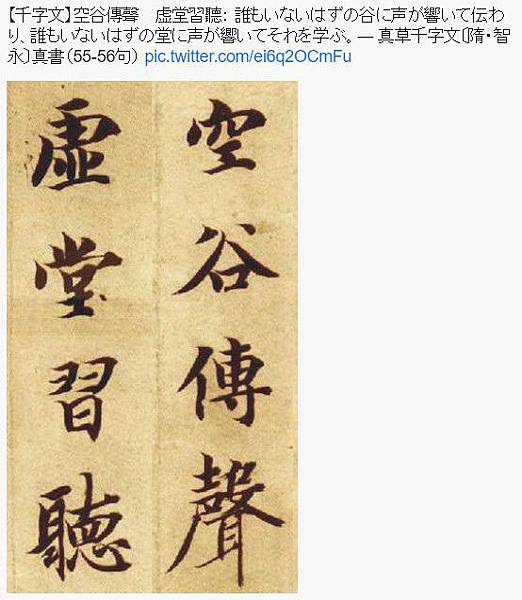 【千字文】空谷傳聲　虚堂習聽: 誰もいないはずの谷に声が響いて伝わ
り、誰もいないはずの堂に声が響いてそれを学ぶ。 — 真草千字文〔隋・智
永〕真書（55-56句） pic.twitter.com/ei6q2OCmFu
空谷傳聲
虚堂習聽